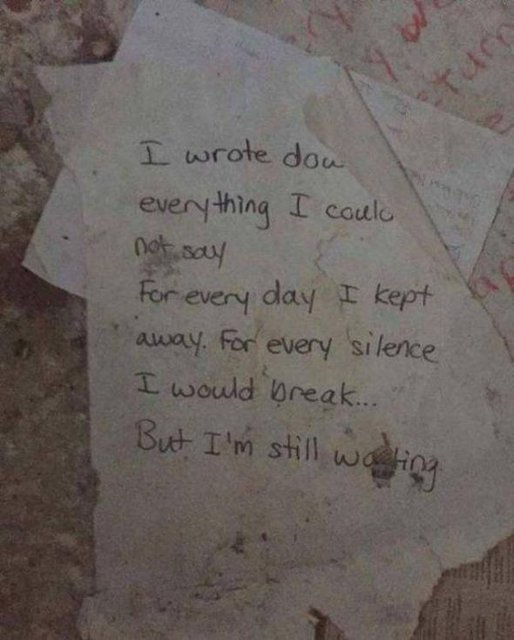 I wrote dow
everything I could
not say
For every day I kept
away. For every silence
I would break...
But I'm still waiting